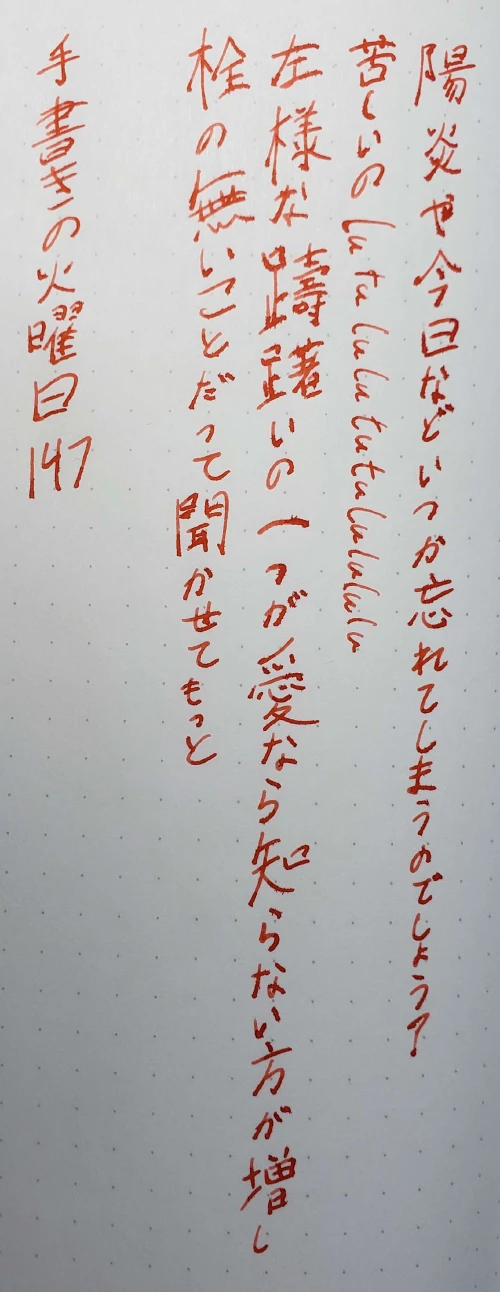 陽炎や今日などいつか忘れてしまうのでしょう?
苦しいの lu tu lu lu tu tu lu lu lu lu
左様な躊躇いの一つが愛なら知らない方が増し
栓の無いことだって聞かせてもっと
手書きの火曜日147